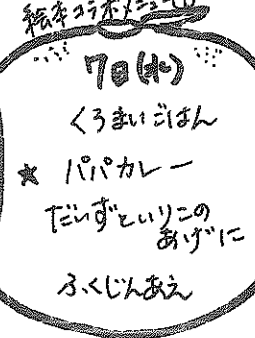 絵本コラボメニュー
7日(水)
くろまいごはん
★ パパカレー
だいずといりこの
あげに
ふくじんあえ